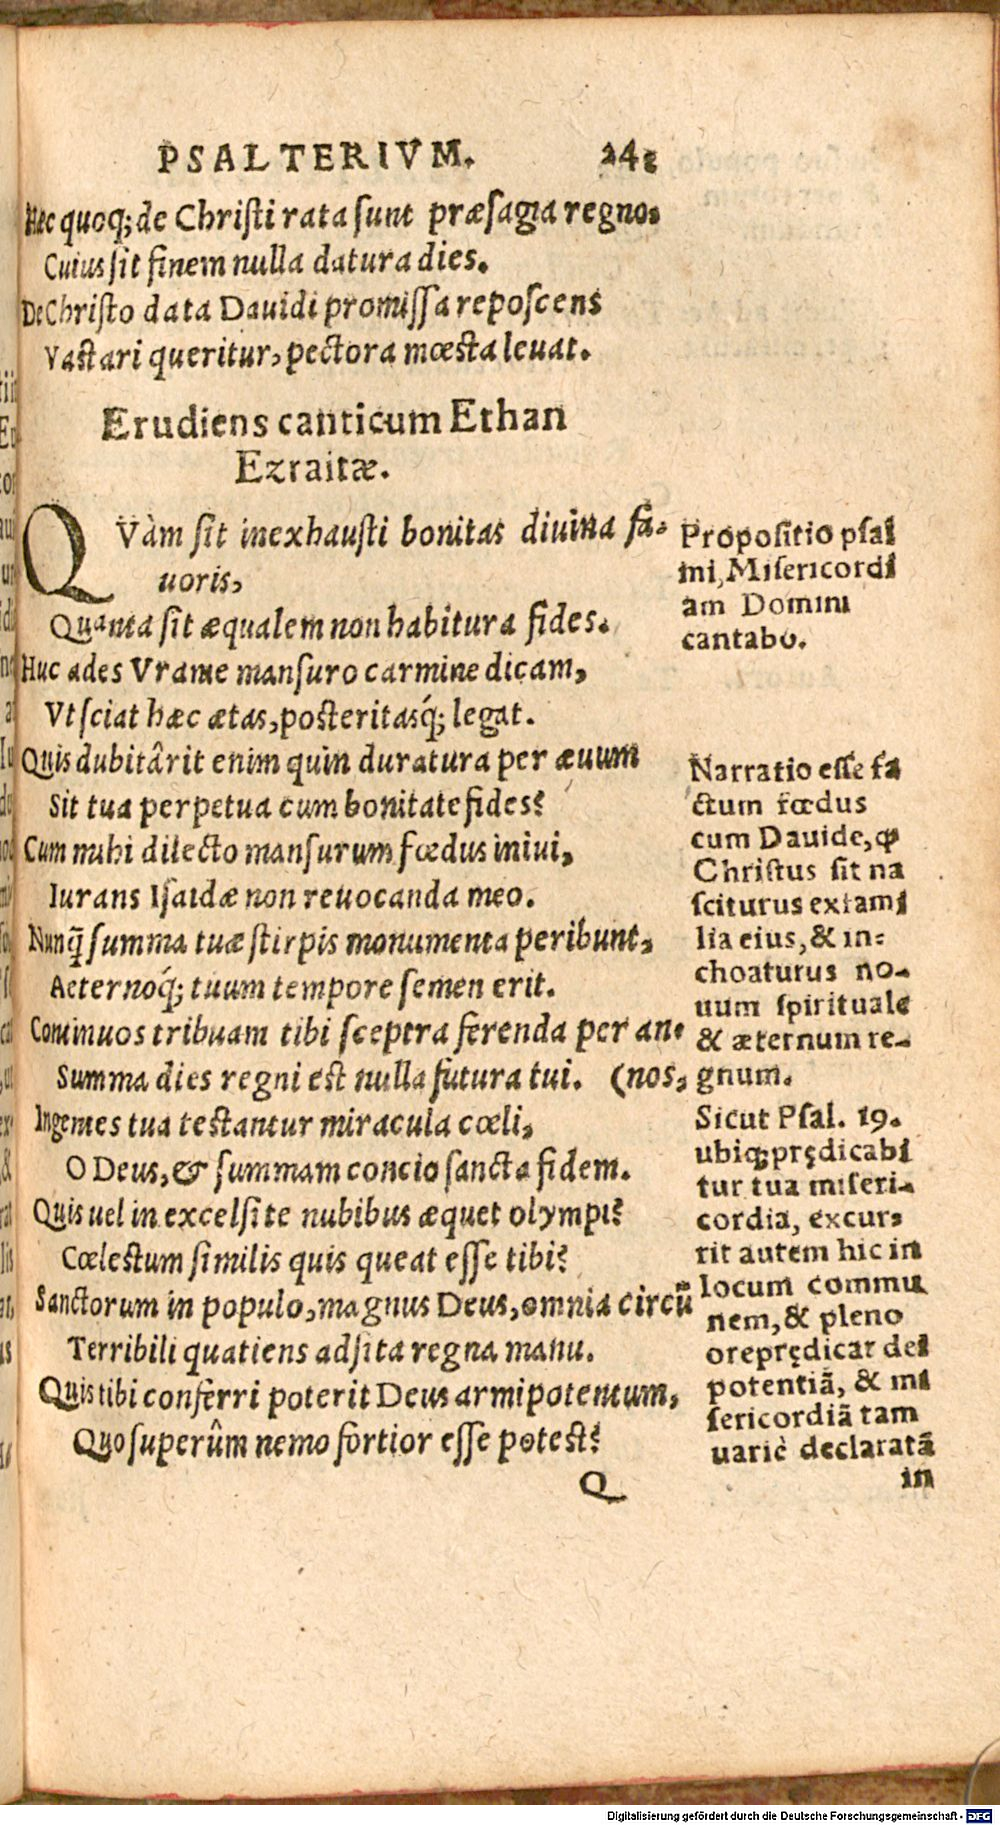 PSALTERIVM. 241
Hęc quoq; de Christi rata sunt præsagia regno,
Cuius sit finem nulla datura dies.
De Christo data Dauidi promissa reposcens
Vastari queritur, pectora mœsta leuat.
Erudiens canticum Ethan
Ezraitæ.
QVàm sit inexhausti bonitas diuina fa-
uoris,
Quanta sit æqualem non habitura fides.
Huc ades Vranie mansuro carmine dicam,
Vt sciat hæc ætas, posteritasq́; legat.
Quis dubitârit enim quin duratura per æuum
Sit tua perpetua cum bonitate fides?
Cum mihi dilecto mansurum fœdus iniui,
Iurans Isaidæ non reuocanda meo.
Nunq̃ summa tuæ stirpis monumenta peribunt,
Aeternoq́; tuum tempore semen erit.
Continuos tribuam tibi sceptra ferenda per an-
Summa dies regni est nulla futura tui. (nos,
Ingentes tua testantur miracula cœli,
O Deus, & summam concio sancta fidem.
Quis uel in excelsi te nubibus æquet olympi?
Cœlestum similis quis queat esse tibi?
Sanctorum in populo, magnus Deus, omnia circũ
Terribili quatiens adsita regna manu.
Quis tibi conferri poterit Deus armipotentum,
Quo superûm nemo fortior esse potest?
Q
Propositio psal
mi, Misericordi
am Domini
cantabo.
Narratio esse fa
ctum fœdus
cum Dauide, ꝙ
Christus sit na
sciturus ex fami
lia eius, & in-
choaturus no-
uum spirituale
& æternum re-
gnum.
Sicut Psal. 19.
ubiq; prędicabi
tur tua miseri-
cordia, excur-
rit autem hic in
locum commu
nem, & pleno
ore prędicat dei
potentiã, & mi
sericordiã tam
uariè declaratã
in
Digitalisierung gefördert durch die Deutsche Forschungsgemeinschaft - DFG